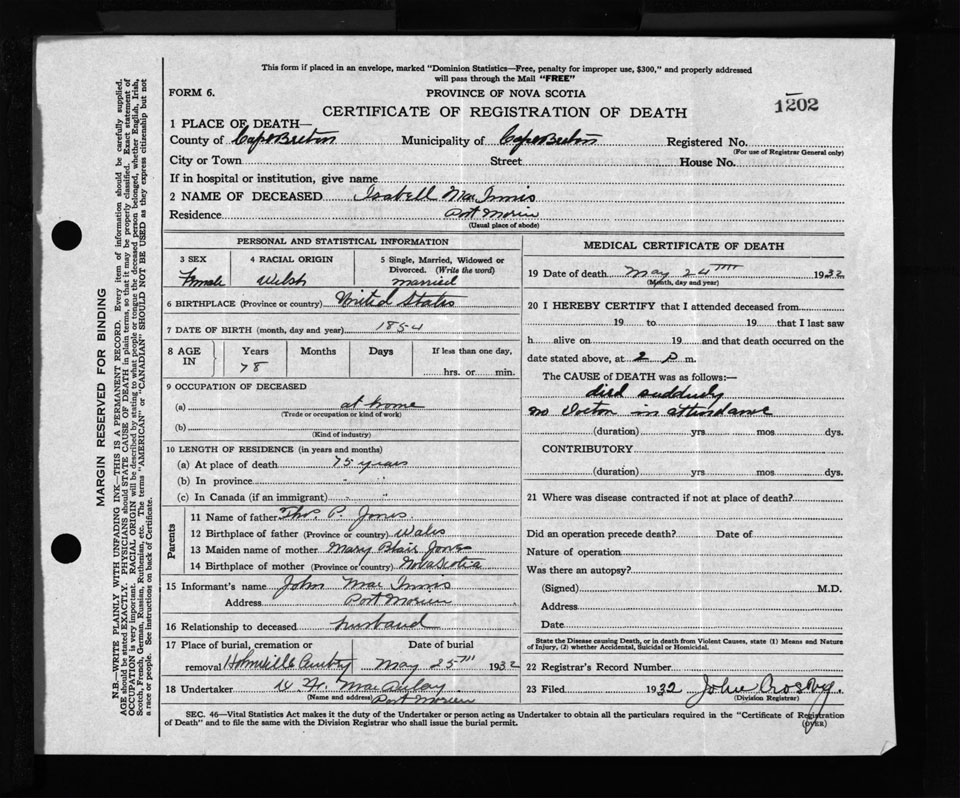 This form if placed in an envelope, marked "Dominion Statistics—Free, penalty for improper use, $300," and properly addressed
will pass through the Mail "FREE"
FORM 6.
PROVINCE OF NOVA SCOTIA
1202
CERTIFICATE OF REGISTRATION OF DEATH
1 PLACE OF DEATH—
County of Cape Breton Municipality of Cape Breton Registered No.
(For use of Registrar General only)
City or Town Street House No.
If in hospital or institution, give name
2 NAME OF DECEASED Isabell MacInnis
Residence Port Morien
(Usual place of abode)
PERSONAL AND STATISTICAL INFORMATION
3 SEX 4 RACIAL ORIGIN 5 Single, Married, Widowed or Divorced. (Write the word)
Female Welsh married
6 BIRTHPLACE (Province or country) United States
7 DATE OF BIRTH (month, day and year) 1854
8 AGE IN Years Months Days If less than one day,
78 hrs. or min.
9 OCCUPATION OF DECEASED
(a) at home
(Trade or occupation or kind of work)
(b)
(Kind of industry)
10 LENGTH OF RESIDENCE (in years and months)
(a) At place of death 75 years
(b) In province " "
(c) In Canada (if an immigrant) " "
Parents
11 Name of father Thos. P. Jones
12 Birthplace of father (Province or country) Wales
13 Maiden name of mother Mary Blair Jones
14 Birthplace of mother (Province or country) Nova Scotia
15 Informant's name John MacInnis
Address Port Morien
16 Relationship to deceased husband
17 Place of burial, cremation or Date of burial
removal May 25TH 1932
18 Undertaker
(Name and address) Port Morien
MEDICAL CERTIFICATE OF DEATH
19 Date of death May 24TH 1932
(Month, day and year)
20 I HEREBY CERTIFY that I attended deceased from
19 to 19 that I last saw
h alive on 19 and that death occurred on the
date stated above, at 2 p m.
The CAUSE of DEATH was as follows:—
died suddenly
no Doctor in attendance
(duration) yrs mos dys.
CONTRIBUTORY
(duration) yrs mos dys.
21 Where was disease contracted if not at place of death?
Did an operation precede death? Date of
Nature of operation
Was there an autopsy?
(Signed) M.D.
Address
Date
State the Disease causing Death, or in death from Violent Causes, state (1) Means and Nature
of Injury, (2) whether Accidental, Suicidal or Homicidal.
22 Registrar's Record Number
23 Filed 1932 John Crosby.
(Division Registrar)
SEC. 46—Vital Statistics Act makes it the duty of the Undertaker or person acting as Undertaker to obtain all the particulars required in the "Certificate of Registration
of Death" and to file the same with the Division Registrar who shall issue the burial permit.
(OVER)
MARGIN RESERVED FOR BINDING
N.B.—WRITE PLAINLY WITH UNFADING INK—THIS IS A PERMANENT RECORD. Every item of information should be carefully supplied.
AGE should be stated EXACTLY. PHYSICIANS should STATE CAUSE OF DEATH in plain terms, so that it may be properly classified. Exact statement of
OCCUPATION is very important. RACIAL ORIGIN will be described by stating to what people or tongue the deceased person belonged, whether English, Irish,
Scotch, French, German, Russian, Ruthenian, etc. The terms "AMERICAN" or "CANADIAN" SHOULD NOT BE USED as they express citizenship but not
a race or people. See instructions on back of Certificate.